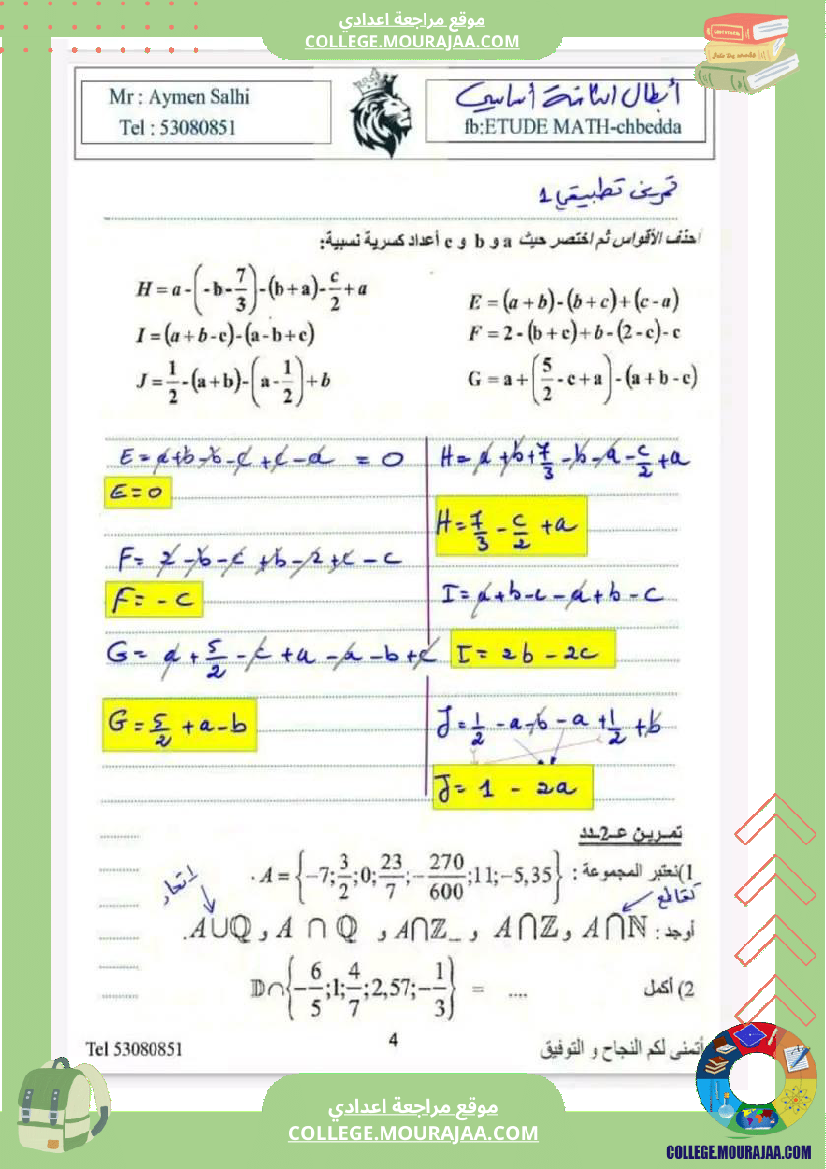 موقع مراجعة اعدادي
COLLEGE.MOURAJAA.COM
Mr : Aymen Salhi
Tel : 53080851
أبطال الثامنة أساسي
fb:ETUDE MATH-chbedda
تمرين تطبيقي 1
احذف الأقواس ثم اختصر حيث a و b و c أعداد كسرية نسبية:
E = (a + b) - (b + c) + (c - a)
F = 2 - (b + c) + b - (2 - c) - c
G = a + (5/2 - c + a) - (a + b - c)
H = a - (-b - 7/3) - (b + a) - c/2 + a
I = (a + b - c) - (a - b + c)
J = 1/2 - (a + b) - (a - 1/2) + b
E = a + b - b - c + c - a = 0
E = 0
F = 2 - b - c + b - 2 + c - c
F = - c
G = a + 5/2 - c + a - a - b + c
G = 5/2 + a - b
H = a + b + 7/3 - b - a - c/2 + a
H = 7/3 - c/2 + a
I = a + b - c - a + b - c
I = 2b - 2c
J = 1/2 - a - b - a + 1/2 + b
J = 1 - 2a
تمرين عـ2ـدد
1) نعتبر المجموعة : A = {-7; 3/2; 0; 23/7; - 270/600; 11; -5,35} .
تقاطع
اتحاد
أوجد : A∩ℕ و A∩ℤ و A∩ℤ_ و A ∩ ℚ و A∪ℚ.
2) أكمل 𝔻∩{-6/5; 1; 4/7; 2,57; -1/3} = ....
أتمنى لكم النجاح و التوفيق
4
Tel 53080851
موقع مراجعة اعدادي
COLLEGE.MOURAJAA.COM
COLLEGE.MOURAJAA.COM